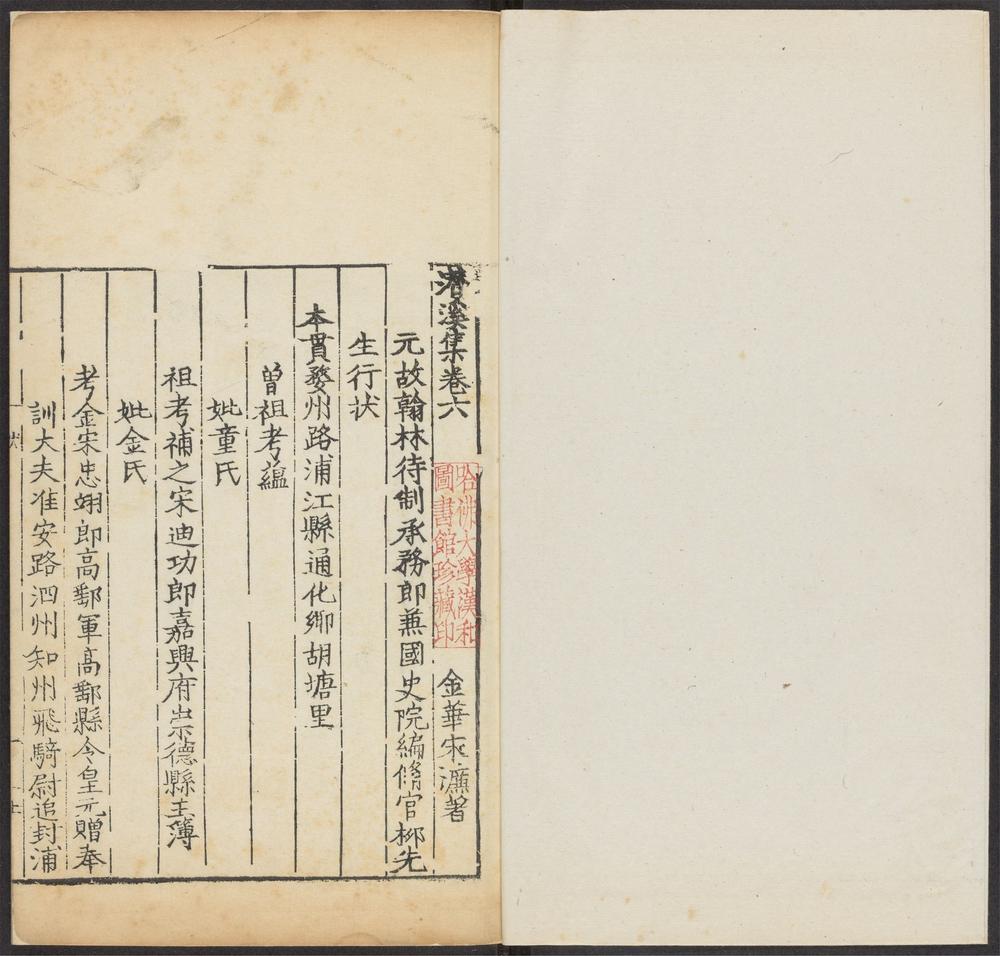 潛溪集卷六
金華宋濂著
元故翰林待制承務郎兼國史院編脩官柳先
生行狀
本貫婺州路浦江縣通化鄉胡塘里
曾祖考蘊
妣童氏
祖考補之宋迪功郎嘉興府崇德縣主簿
妣金氏
考金宋忠翊郎高郵軍高郵縣令皇元贈奉
訓大夫淮安路泗州知州飛騎尉追封浦
哈佛大學漢和
圖書館珍藏印